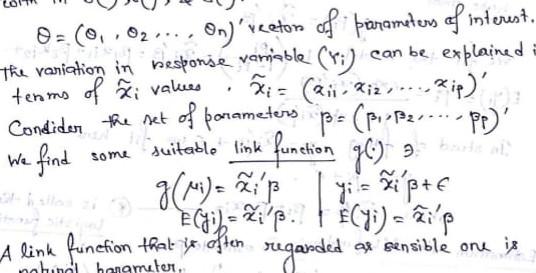 θ = (θ1, θ2 ..., θn)' vector of parameters of interest.
The variation in response variable (Yi) can be explained i
terms of x̃i values. x̃i = (xi1, xi2, ..., xip)'
Condider the set of parameters β = (β1, β2 ..... βp)'
We find some suitable link function g(·) ∋
g(μi) = x̃i'β | yi = x̃i'β + ϵ
E(yi) = x̃i'β. | E(yi) = x̃i'β
A link function that is often regarded as sensible one is
natural parameter.